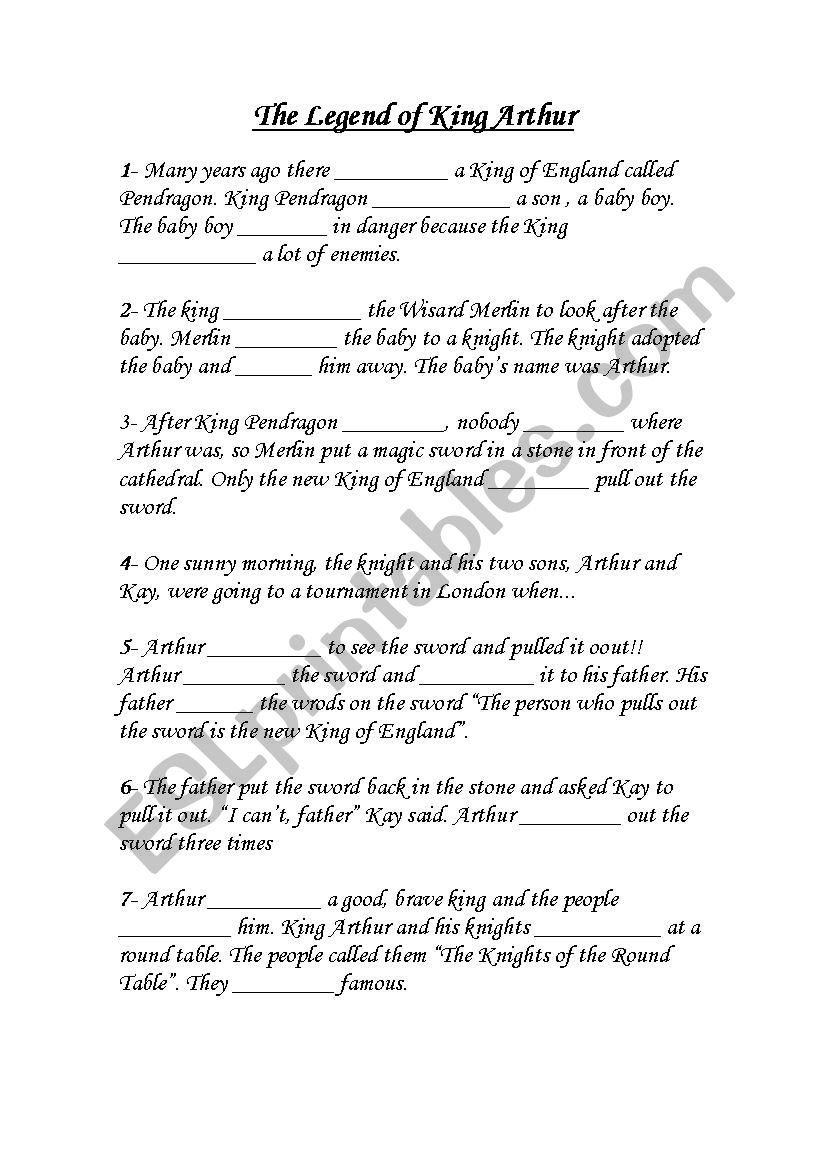 The Legend of King Arthur
1- Many years ago there __________ a King of England called
Pendragon. King Pendragon ____________ a son , a baby boy.
The baby boy ________ in danger because the King
____________ a lot of enemies.
2- The king ____________ the Wisard Merlin to look after the
baby. Merlin _________ the baby to a knight. The knight adopted
the baby and _______ him away. The baby's name was Arthur.
3- After King Pendragon _________, nobody _________ where
Arthur was, so Merlin put a magic sword in a stone in front of the
cathedral. Only the new King of England _________ pull out the
sword.
4- One sunny morning, the knight and his two sons, Arthur and
Kay, were going to a tournament in London when...
5- Arthur __________ to see the sword and pulled it oout!!
Arthur _________ the sword and __________ it to his father. His
father _______ the wrods on the sword “The person who pulls out
the sword is the new King of England”.
6- The father put the sword back in the stone and asked Kay to
pull it out. “I can't, father” Kay said. Arthur _________ out the
sword three times
7- Arthur __________ a good, brave king and the people
__________ him. King Arthur and his knights ___________ at a
round table. The people called them “The Knights of the Round
Table”. They _________ famous.
ESLprintables.com